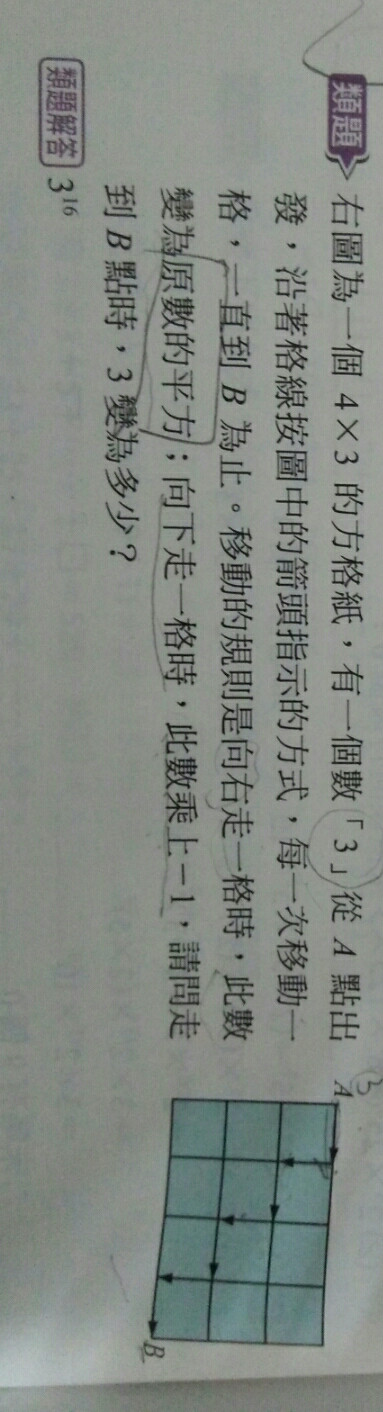 類題 右圖為一個 4×3 的方格紙，有一個數「3」從 A 點出
發，沿著格線按圖中的箭頭指示的方式，每一次移動一
格，一直到 B 為止。移動的規則是向右走一格時，此數
變為原數的平方；向下走一格時，此數乘上－1，請問走
到 B 點時，3 變為多少？
類題解答 3¹⁶
3
A
B